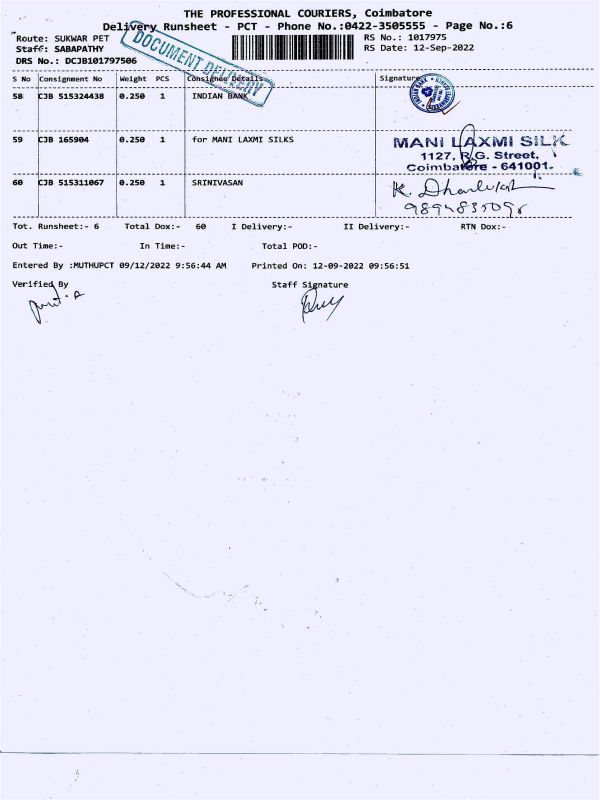 THE PROFESSIONAL COURIERS, Coimbatore
Delivery Runsheet - PCT - Phone No.:0422-3505555 - Page No.:6
Route: SUKWAR PET
RS No.: 1017975
Staff: SABAPATHY
RS Date: 12-Sep-2022
DRS No.: DCJB101797506
DOCUMENT DELIVERY
S No Consignment No Weight PCS Consignee Details Signature
58 CJB 515324438 0.250 1 INDIAN BANK
59 CJB 165904 0.250 1 for MANI LAXMI SILKS
MANI LAXMI SILK
1127, R.G. Street,
Coimbatore - 641001.
60 CJB 515311067 0.250 1 SRINIVASAN
Tot. Runsheet:- 6 Total Dox:- 60 I Delivery:- II Delivery:- RTN Dox:-
Out Time:- In Time:- Total POD:-
Entered By :MUTHUPCT 09/12/2022 9:56:44 AM Printed On: 12-09-2022 09:56:51
Verified By Staff Signature